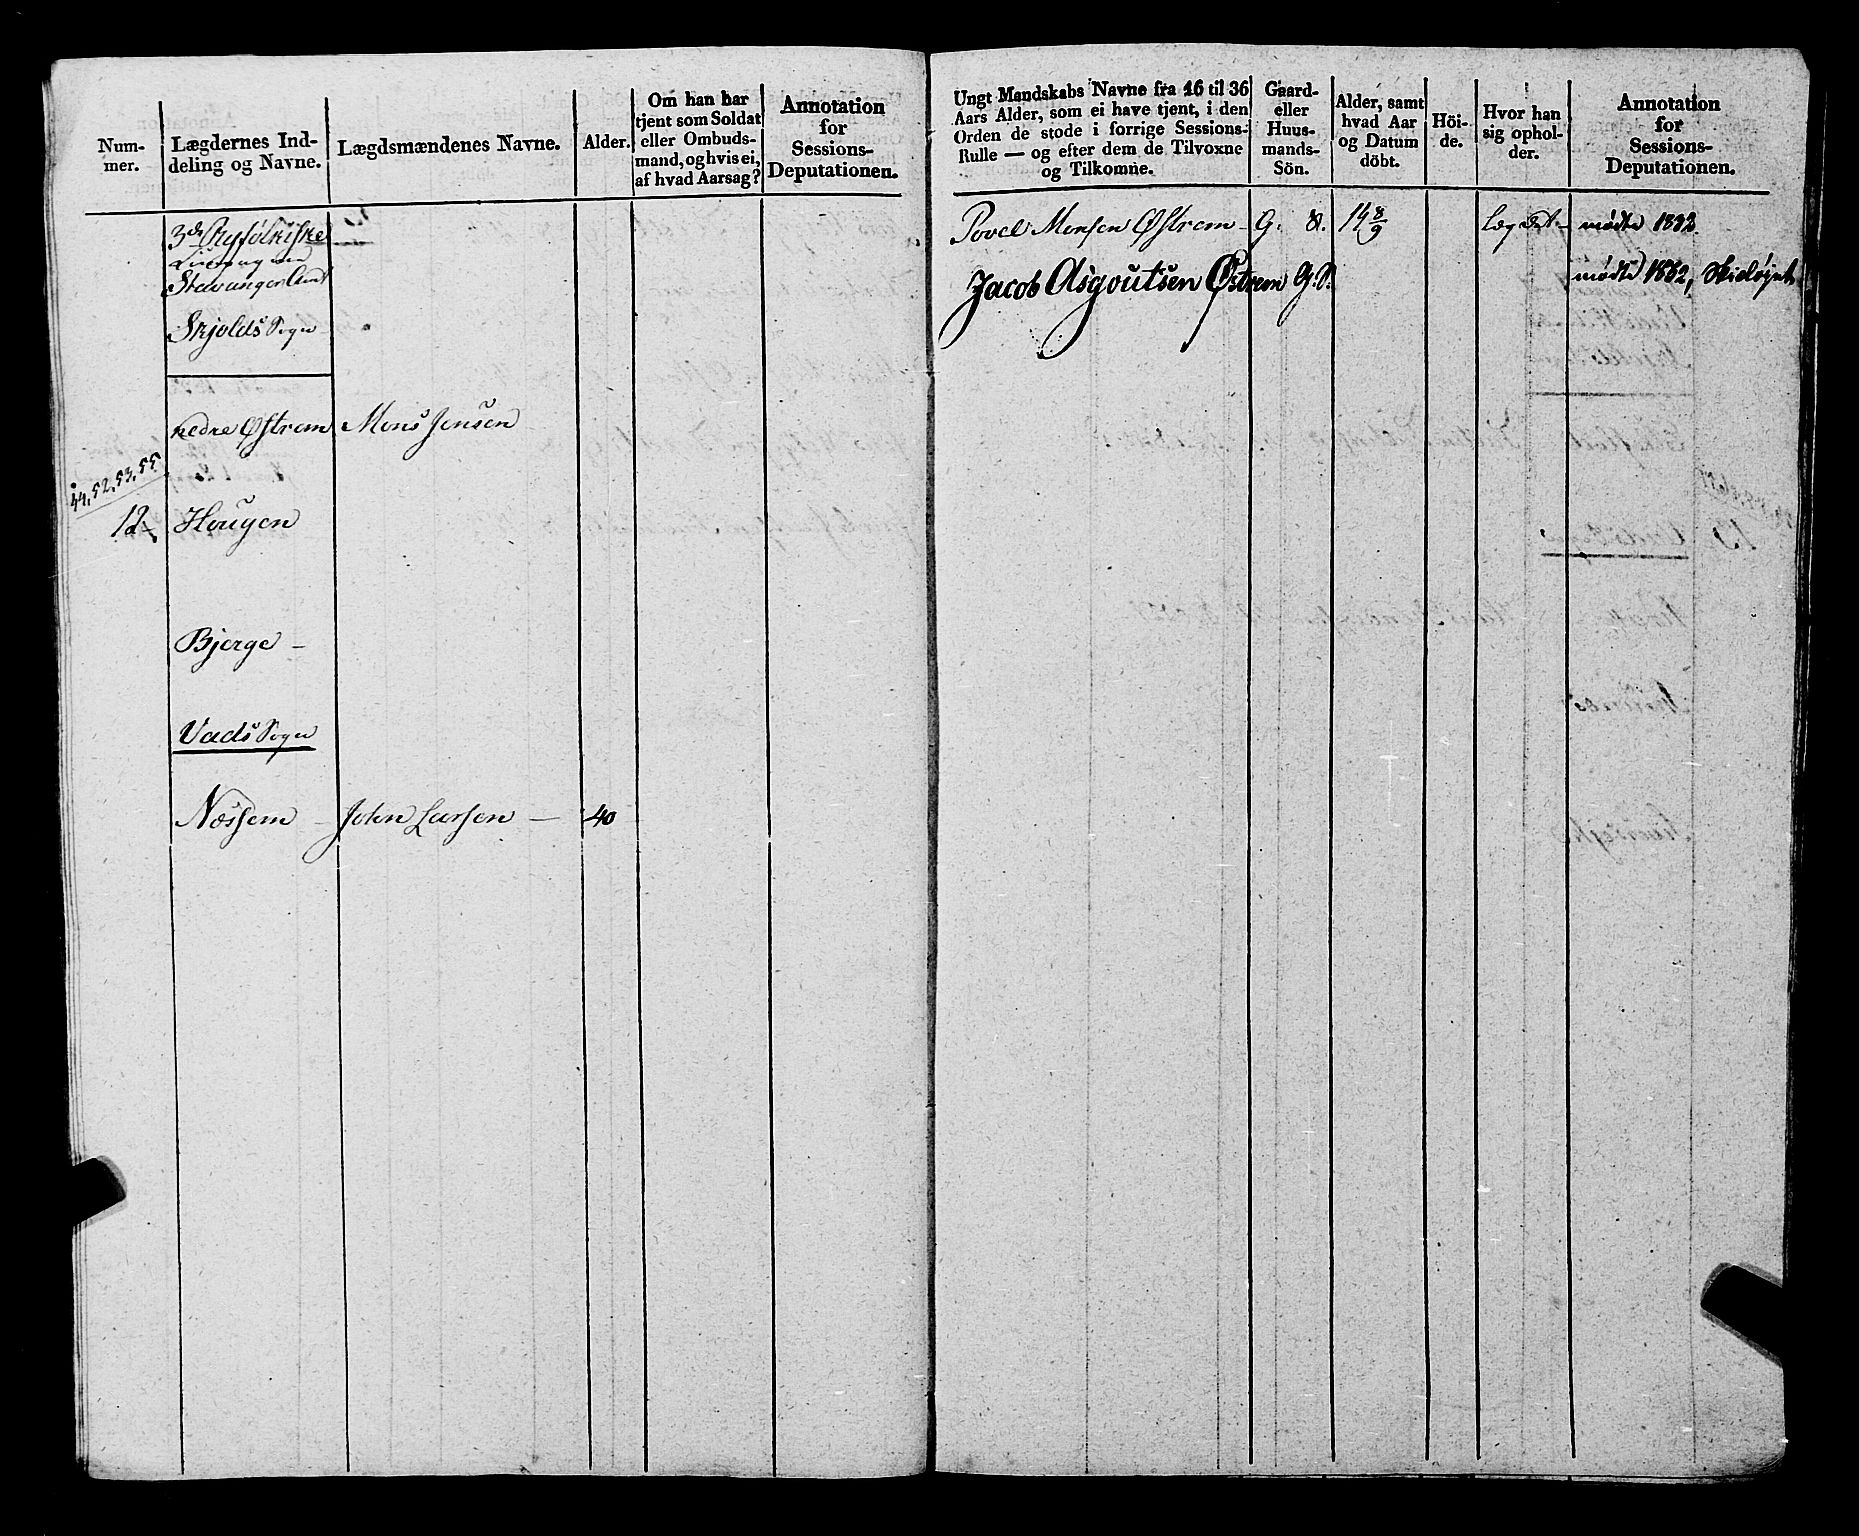 Num-
mer.
Lægdernes Ind-
deling og Navne.
Lægdsmændenes Navne.
Alder.
Om han har
tjent som Soldat
eller Ombuds-
mand, og hvis ei,
af hvad Aarsag?
Annotation
for
Sessions-
Deputationen.
Stavanger Amt
Skjolds Sogn
nedre Østrem Mons Jensen
44, 52, 53, 55
12 Hougen
Bjerge -
Vads Sogn
Nøssem - John Larsen - 40
Ungt Mandskabs Navne fra 16 til 36
Aars Alder, som ei have tjent, i den
Orden de stode i forrige Sessions-
Rulle — og efter dem de Tilvoxne
og Tilkomne.
Gaard-
eller
Huus-
mands-
Sön.
Alder, samt
hvad Aar
og Datum
döbt.
Höi-
de.
Hvor han
sig ophol-
der.
Annotation
for
Sessions-
Deputationen.
Povel Monsen Østrem - G. S. 14 8/9 Lægdet - mødte 1832.
Jacob Asgoutsen Østrem G. S. mødte 1832,